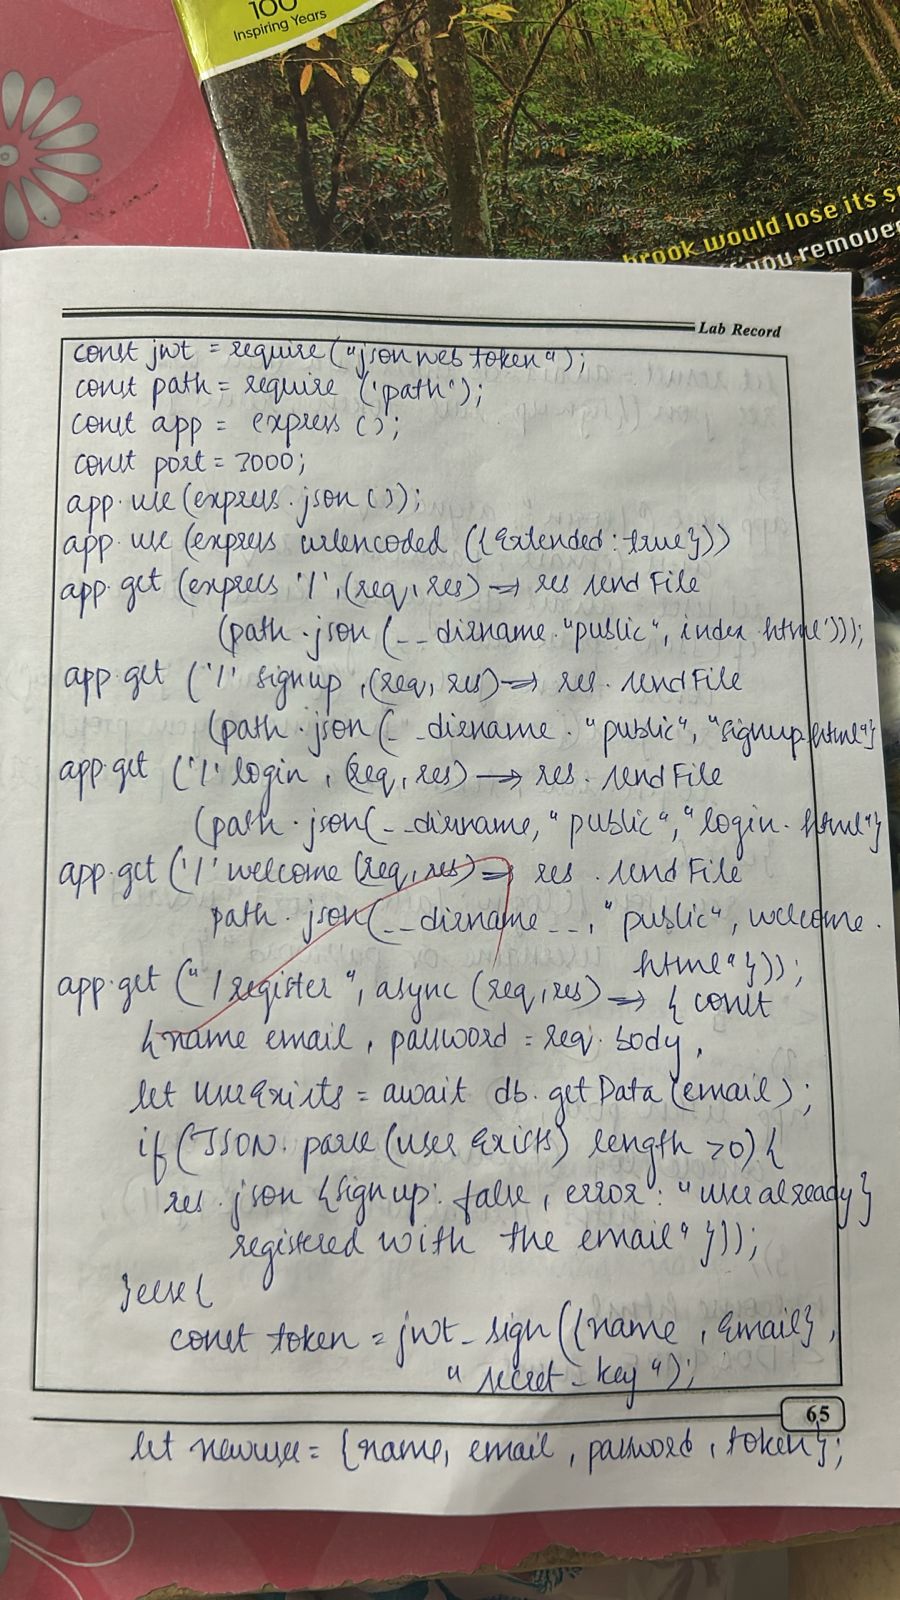 100
Inspiring Years
brook would lose its
if you remove
Lab Record
const jwt = require("jsonweb token");
const path = require ('path');
const app = express ();
const port = 3000;
app.use (express.json ());
app.use (express urlencoded ({Extended: true}))
app.get (express '/', (req, res) → res sendFile
(path.json (__dirname."public", index.html')));
app.get ('/' signup, (req, res) → res. sendFile
(path.json (__dirname. "public", "signup.html"}
app.get ('/' login, (req, res) → res. sendFile
(path.json(__dirname, "public", "login.html"}
app.get ('/' welcome (req, res) → res. sendFile
path.json(__dirname__, "public", welcome.
html"}));
app.get ("/register", async (req, res) → { const
{name email, password = req.body,
let userExists = await db.getData (email);
if (JSON.parse (user Exists) length >0) {
res.json {signup: false, error: "use already}
registered with the email" }));
}else {
const token = jwt_sign ({name, Email},
"secret_key");
65
let newuse = {name, email, password, token};